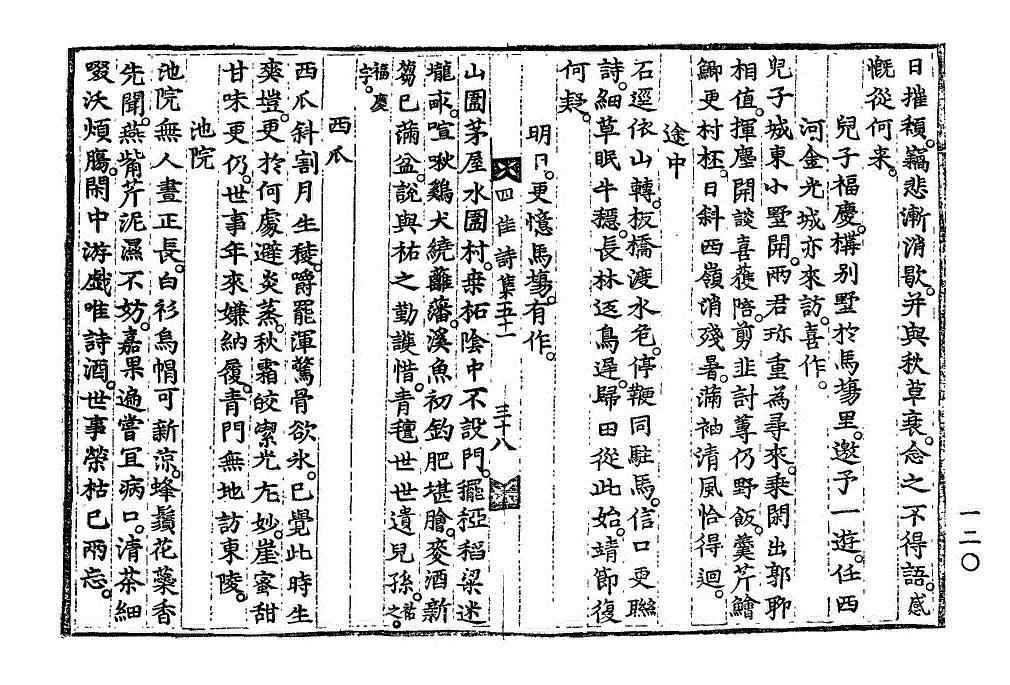 日摧頹。竊悲漸消歇。并與秋草衰。念之不得語。感
慨從何來。
兒子福慶。構别墅於馬蕩里。邀予一遊。任西
河金光城亦來訪。喜作。
兒子城東小墅開。兩君珎重為尋來。乘閑出郭聊
相值。揮麈開談喜獲陪。剪韭討蓴仍野飯。羹芹鱠
鯽更村杯。日斜西嶺消殘暑。滿袖清風恰得迴。
途中
石逕依山轉。板橋渡水危。停鞭同駐馬。信口更聯
詩。細草眠牛穩。長林返鳥遲。歸田從此始。靖節復
何疑。
明日。更憶馬蕩。有作。
四佳詩集五十一
三十八
山園茅屋水園村。桒柘陰中不設門。䆉稏稻粱迷
壠畞。喧啾鷄犬繞籬藩。溪魚初釣肥堪膾。麥酒新
蒭已滿盆。說與祐之勤護惜。青氊世世遺兒孫。祐之。
福慶字。
西瓜
西瓜斜割月生稜。嚼罷渾驚骨欲氷。已覺此時生
爽塏。更於何處避炎蒸。秋霜皎㓗光尤妙。崖蜜甜
甘味更仍。世事年來嫌納履。青門無地訪東陵。
池院
池院無人晝正長。白衫烏帽可新涼。蜂鬚花蘂香
先聞。燕觜芹泥濕不妨。嘉果遍嘗宜病口。清茶細
啜沃煩膓。閑中游戲唯詩酒。世事榮枯已兩忘。
一二〇